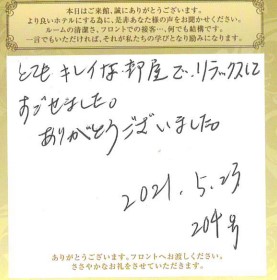 本日はご来館、誠にありがとうございます。
より良いホテルにする為に、是非あなた様の声をお聞かせください。
ルームの清潔さ、フロントでの接客…、何でも結構です。
一言でもいただければ、それが私たちの学びとなり励みになります。
とても キレイな 部屋で、リラックスして
すごせました。
ありがとうございました。
2021.5.23
204号
ありがとうございます。フロントへお渡しください。
ささやかなお礼をさせていただきます。